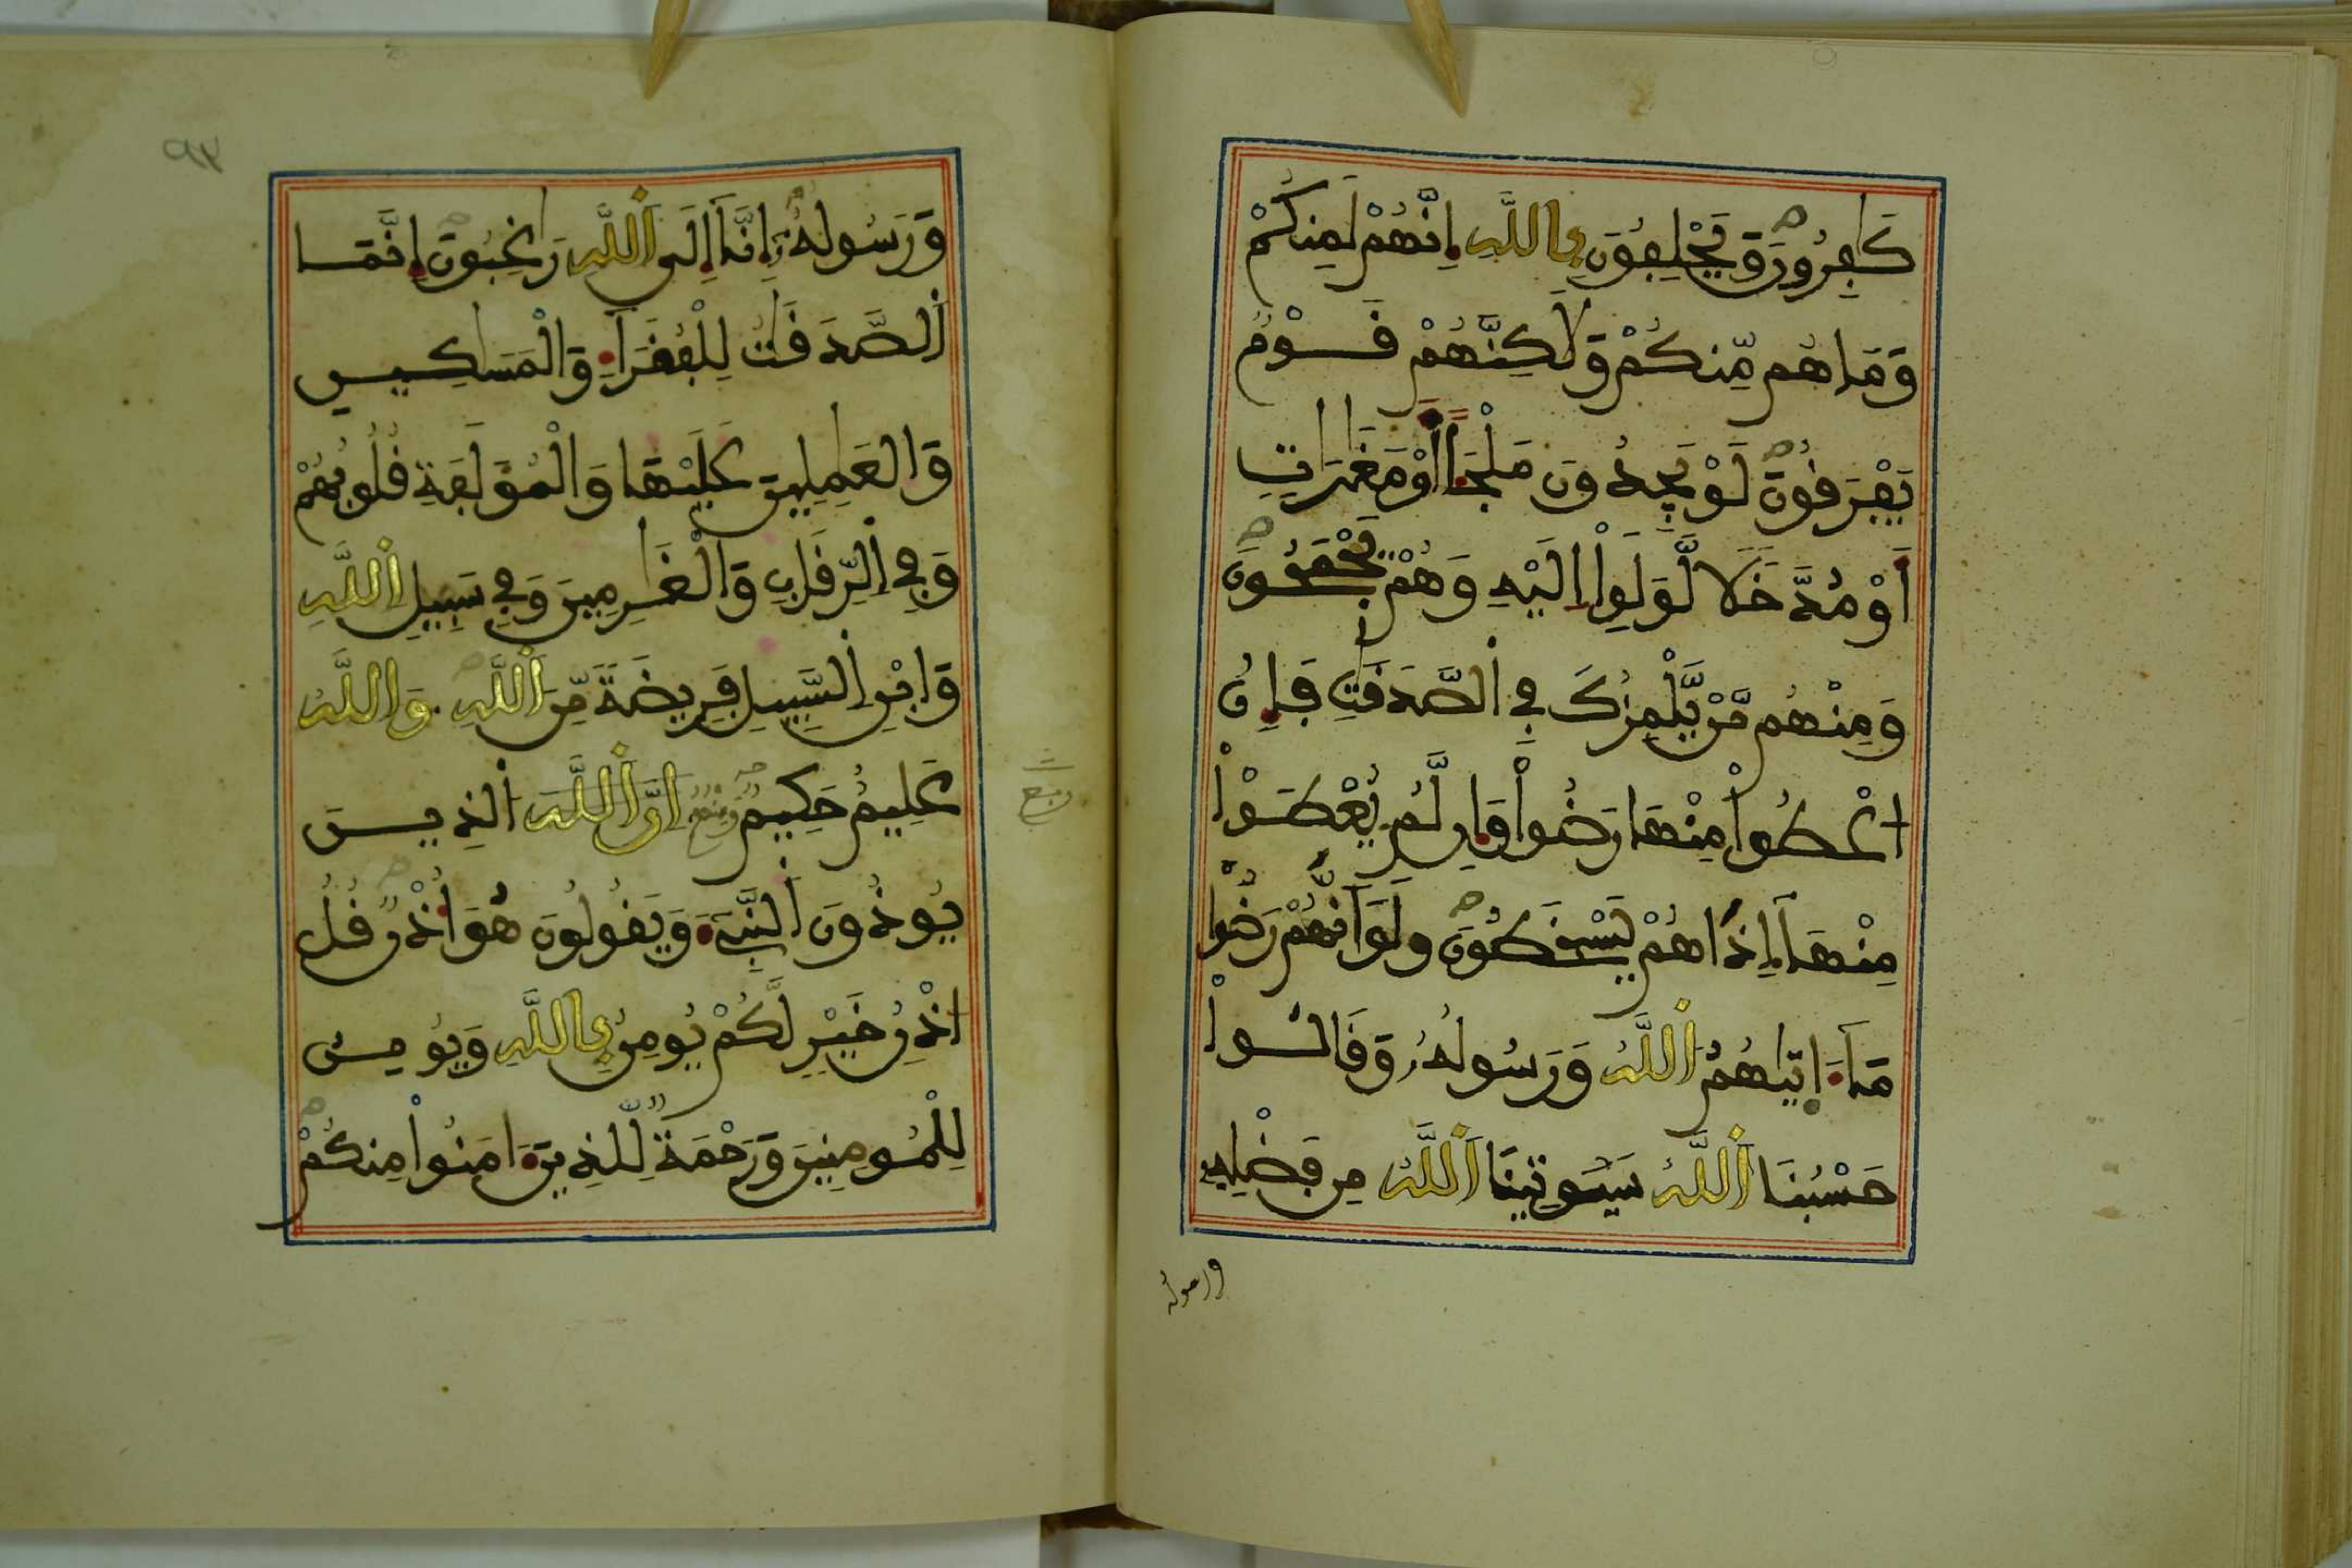 كَٰفِرُونَ وَيَحْلِفُونَ بِاللَّهِ إِنَّهُمْ لَمِنكُمْ
وَمَا هُم مِّنكُمْ وَلَٰكِنَّهُمْ قَوْمٌ
يَفْرَقُونَ لَوْ يَجِدُونَ مَلْجَـًٔا أَوْ مَغَٰرَاتٍ
أَوْ مُدَّخَلًا لَّوَلَّوْا إِلَيْهِ وَهُمْ يَجْمَحُونَ
وَمِنْهُم مَّنْ يَّلْمِزُكَ فِي الصَّدَقَٰتِ فَإِنُ
اعْطُوا مِنْهَا رَضُوا وَإِن لَّمْ يُعْطَوْا
مِنْهَا إِذَا هُمْ يَسْخَطُونَ وَلَوَ انَّهُمْ رَضُوا
مَا ءَاتَىٰهُمُ اللَّهُ وَرَسُولُهُ وَقَالُوا
حَسْبُنَا اللَّهُ سَيُوتِينَا اللَّهُ مِن فَضْلِهِ
ورسوله
٩٣
وَرَسُولُهُ إِنَّا إِلَى اللَّهِ رَٰغِبُونَ إِنَّمَا
الصَّدَقَٰتُ لِلْفُقَرَاءِ وَالْمَسَٰكِينِ
وَالْعَٰمِلِينَ عَلَيْهَا وَالْمُؤَلَّفَةِ قُلُوبُهُمْ
وَفِي الرِّقَابِ وَالْغَٰرِمِينَ وَفِي سَبِيلِ اللَّهِ
وَابْنِ السَّبِيلِ فَرِيضَةً مِّنَ اللَّهِ وَاللَّهُ
عَلِيمٌ حَكِيمٌ وَمِنْهُمُ الَّذِينَ
يُوذُونَ النَّبِيءَ وَيَقُولُونَ هُوَ أُذْنٌ قُلُ
اذْنُ خَيْرٍ لَّكُمْ يُومِنُ بِاللَّهِ وَيُومِنُ
لِلْمُومِنِينَ وَرَحْمَةٌ لِّلَّذِينَ ءَامَنُوا مِنكُمْ
ربع